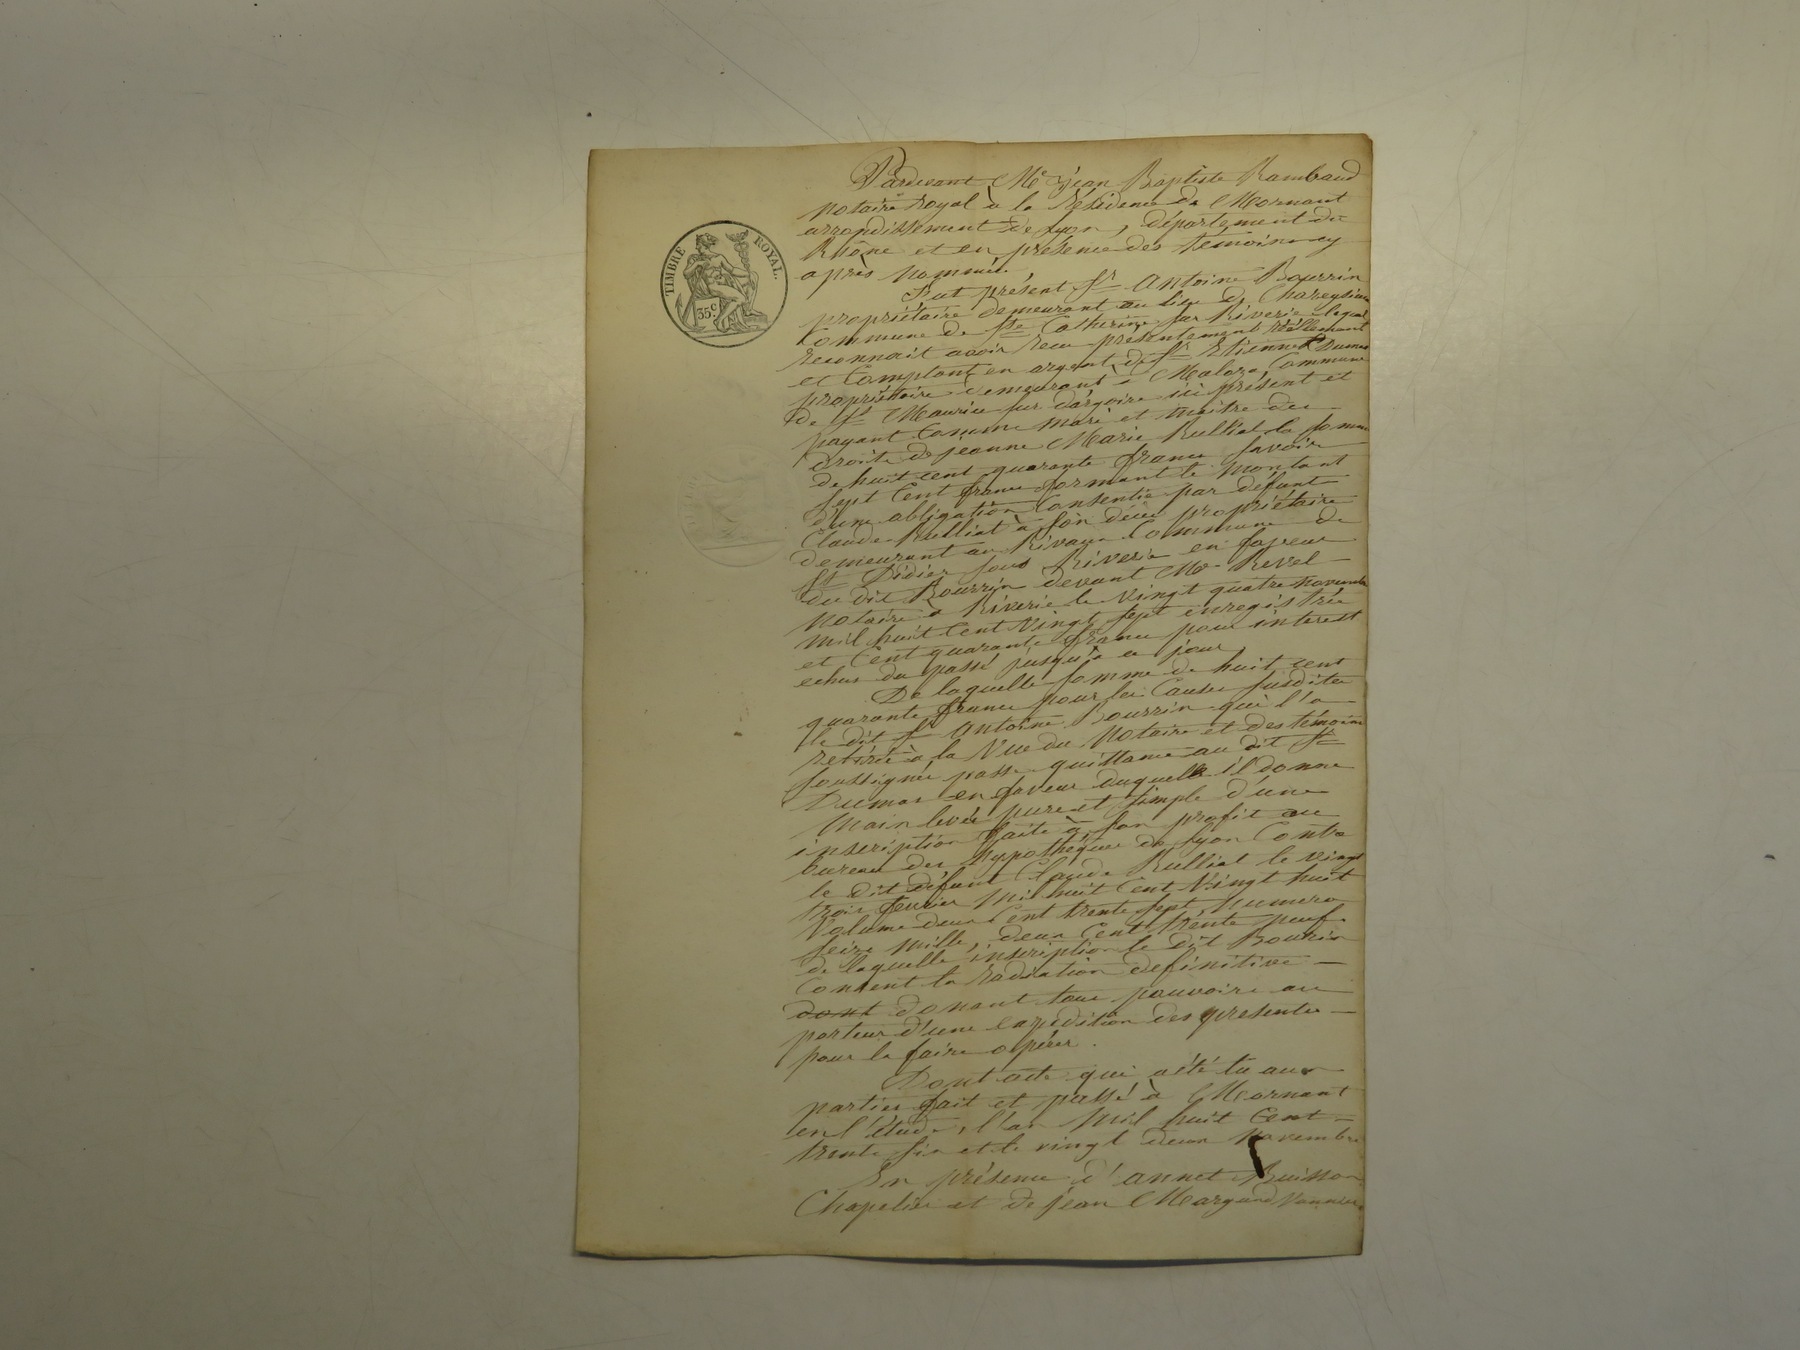 TIMBRE ROYAL.
35 c
Pardevant Me jean Baptiste Rambaud
notaire royal à la résidence de Mornant
arrondissement de Lyon, département du
Rhône et en présence des témoins cy
après nommés.
Fut présent Sr Antoine Bourrin
propriétaire demeurant au lieu de
Commune de Ste Catherine sur Riverie lequel
reconnait avoir recu présentement réellement
et Comptant en argent de Sr Etienne Dumas
propriétaire demeurant à Commune
de St Maurice sur dargoire ici présent et
payant Comme mari et maitre des
droits de jeanne Marie Rulliat la somme
de huit cent quarante francs savoir
sept Cent francs formant le montant
d'une obligation Consentie par défunt
Claude Rulliat à son décès propriétaire
demeurant au Rivaux Commune de
St Didier sous Riverie en faveur
du dit Bourrin devant Me Revel
notaire à Riverie le vingt quatre novembre
mil huit Cent Vingt sept enregistrée
et Cent quarante francs pour interest
echus du passé jusqu'à ce jour
De laquelle somme de huit cent
quarante francs pour les Causes susdites
le dit Sr Antoine Bourrin qui l'a
retirée à la Vue du Notaire et des témoins
soussignés passe quittance au dit Sr
Dumas en faveur duquel il donne
main levée pure et simple d'une
inscription faite à son profit au
bureau des hypothèques de Lyon Contre
le dit défunt Claude Rulliat le vingt
trois fevrier mil huit Cent Vingt huit
Volume deux Cent trente sept numero
seize mille, deux Cent trente neuf
de laquelle inscription le dit Bourrin
Consent la radiation definitive
dont donant tous pouvoirs au
porteur d'une expedition des presentes
pour la faire opérer.
Dont acte qui a été lu aux
parties fait et passé à Mornant
en l'étude, l'an mil huit Cent
trente six et le vingt deux novembre
En présence d'annet Buisson
Chapelier et de jean